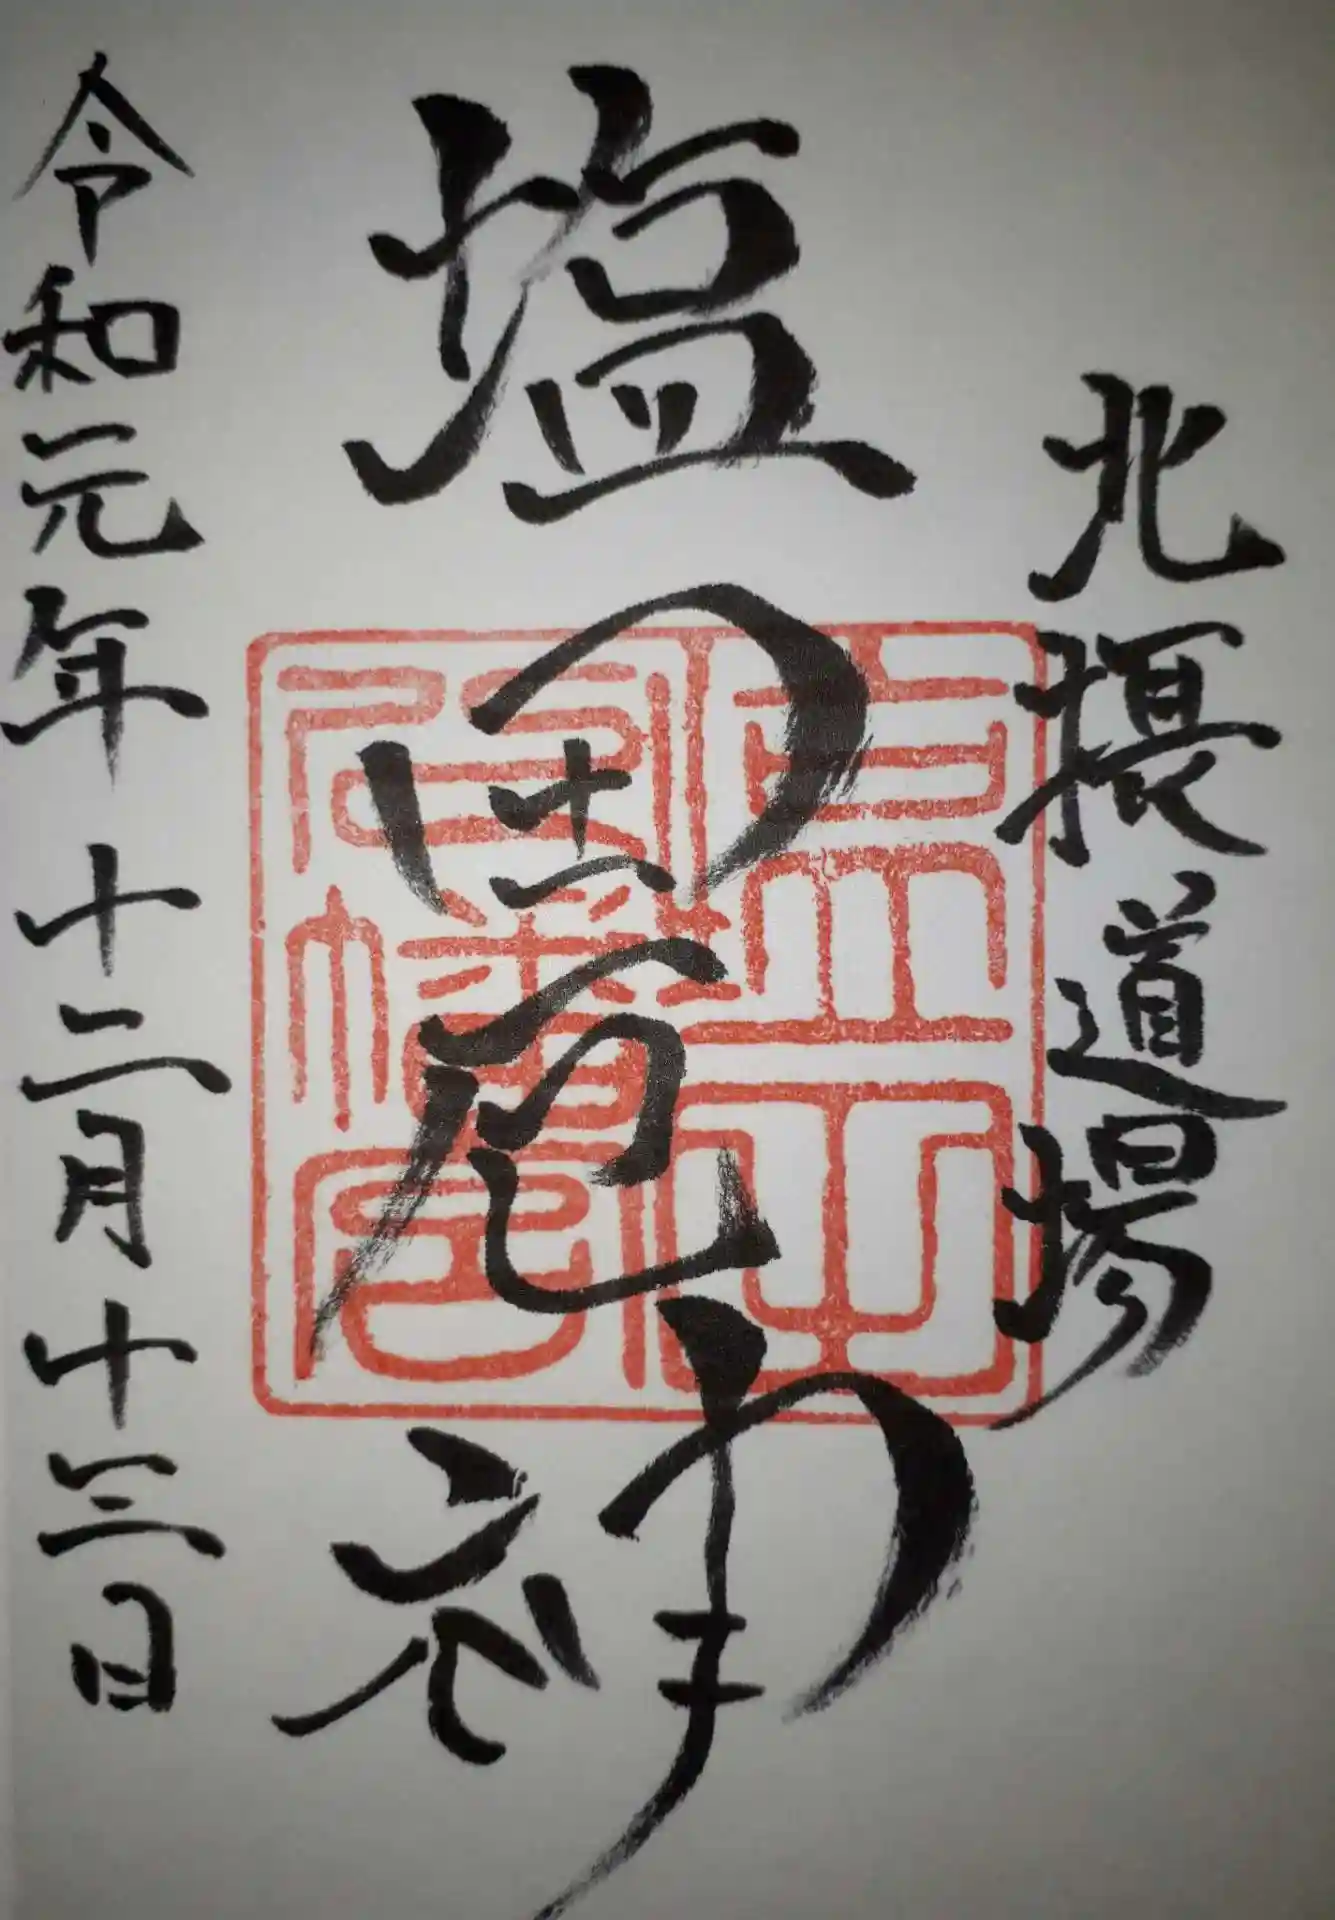 北摂道場
塩田厄神
令和元年十二月十三日